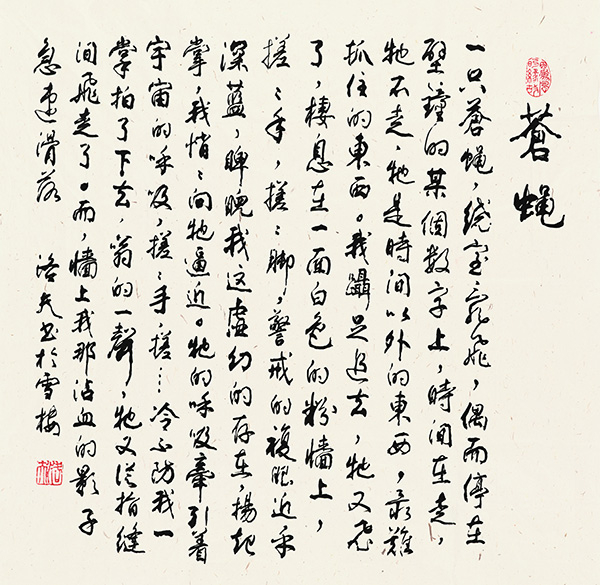 蒼蝇
一只蒼蝇，繞室亂飛，偶而停在
壁鐘的某個數字上，時间在走，
牠不走，牠是時间以外的東西，最難
抓住的東西。我躡足追去，牠又飛
了，棲息在一面白色的粉牆上，
搓〻手，搓〻脚，警戒的複眼近乎
深藍，睥睨我这虛幻的存在，揚起
掌，我悄〻向牠逼近。牠的呼吸牽引着
宇宙的呼吸，搓〻手，搓…冷不防我一
掌拍了下去，翁的一聲，牠又從指縫
间飛走了。而，牆上我那沾血的影子
急速滑落 洛夫书於雪樓